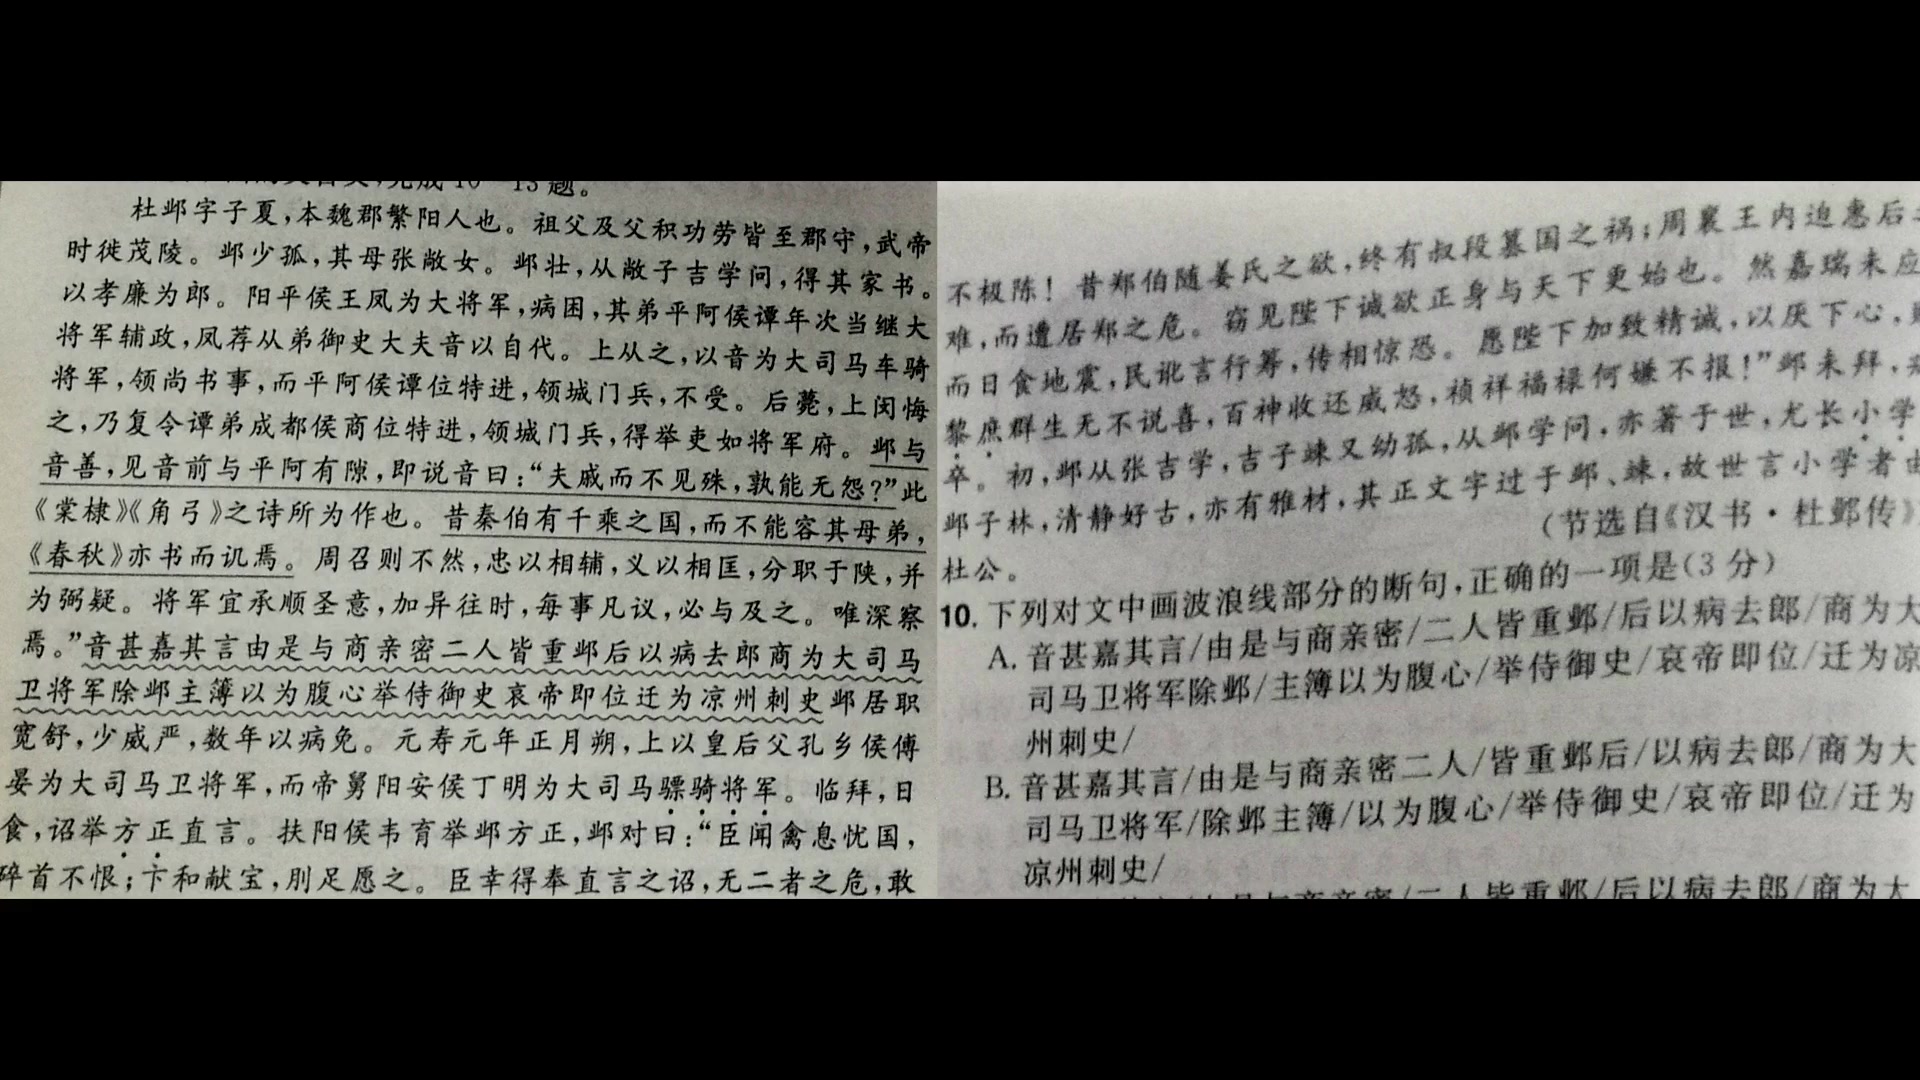 完成10—13题。
杜邺字子夏，本魏郡繁阳人也。祖父及父积功劳皆至郡守，武帝
时徙茂陵。邺少孤，其母张敞女。邺壮，从敞子吉学问，得其家书。
以孝廉为郎。阳平侯王凤为大将军，病困，其弟平阿侯谭年次当继大
将军辅政，凤荐从弟御史大夫音以自代。上从之，以音为大司马车骑
将军，领尚书事，而平阿侯谭位特进，领城门兵，不受。后薨，上闵悔
之，乃复令谭弟成都侯商位特进，领城门兵，得举吏如将军府。邺与
音善，见音前与平阿有隙，即说音曰：“夫戚而不见殊，孰能无怨？”此
《棠棣》《角弓》之诗所为作也。昔秦伯有千乘之国，而不能容其母弟，
《春秋》亦书而讥焉。周召则不然，忠以相辅，义以相匡，分职于陕，并
为弼疑。将军宜承顺圣意，加异往时，每事凡议，必与及之。唯深察
焉。”音甚嘉其言由是与商亲密二人皆重邺后以病去郎商为大司马
卫将军除邺主簿以为腹心举侍御史哀帝即位迁为凉州刺史邺居职
宽舒，少威严，数年以病免。元寿元年正月朔，上以皇后父孔乡侯傅
晏为大司马卫将军，而帝舅阳安侯丁明为大司马骠骑将军。临拜，日
食，诏举方正直言。扶阳侯韦育举邺方正，邺对曰：“臣闻禽息忧国，
碎首不恨；卞和献宝，刖足愿之。臣幸得奉直言之诏，无二者之危，敢
不极陈！昔郑伯随姜氏之欲，终有叔段篡国之祸；周襄王内迫惠后之
难，而遭居郑之危。窃见陛下诚欲正身与天下更始也。然嘉瑞未应，
而日食地震，民讹言行筹，传相惊恐。愿陛下加致精诚，以厌下心，则
黎庶群生无不说喜，百神收还威怒，祯祥福禄何嫌不报！”邺未拜，
卒。初，邺从张吉学，吉子竦又幼孤，从邺学问，亦著于世，尤长小学。
邺子林，清静好古，亦有雅材，其正文字过于邺、竦，故世言小学者由
杜公。
（节选自《汉书·杜邺传》
10. 下列对文中画波浪线部分的断句，正确的一项是（3分）
A. 音甚嘉其言/由是与商亲密/二人皆重邺/后以病去郎/商为大
司马卫将军除邺/主簿以为腹心/举侍御史/哀帝即位/迁为凉
州刺史/
B. 音甚嘉其言/由是与商亲密二人/皆重邺后/以病去郎/商为大
司马卫将军/除邺主簿/以为腹心/举侍御史/哀帝即位/迁为
凉州刺史/
二人皆重邺/后以病去郎/商为大